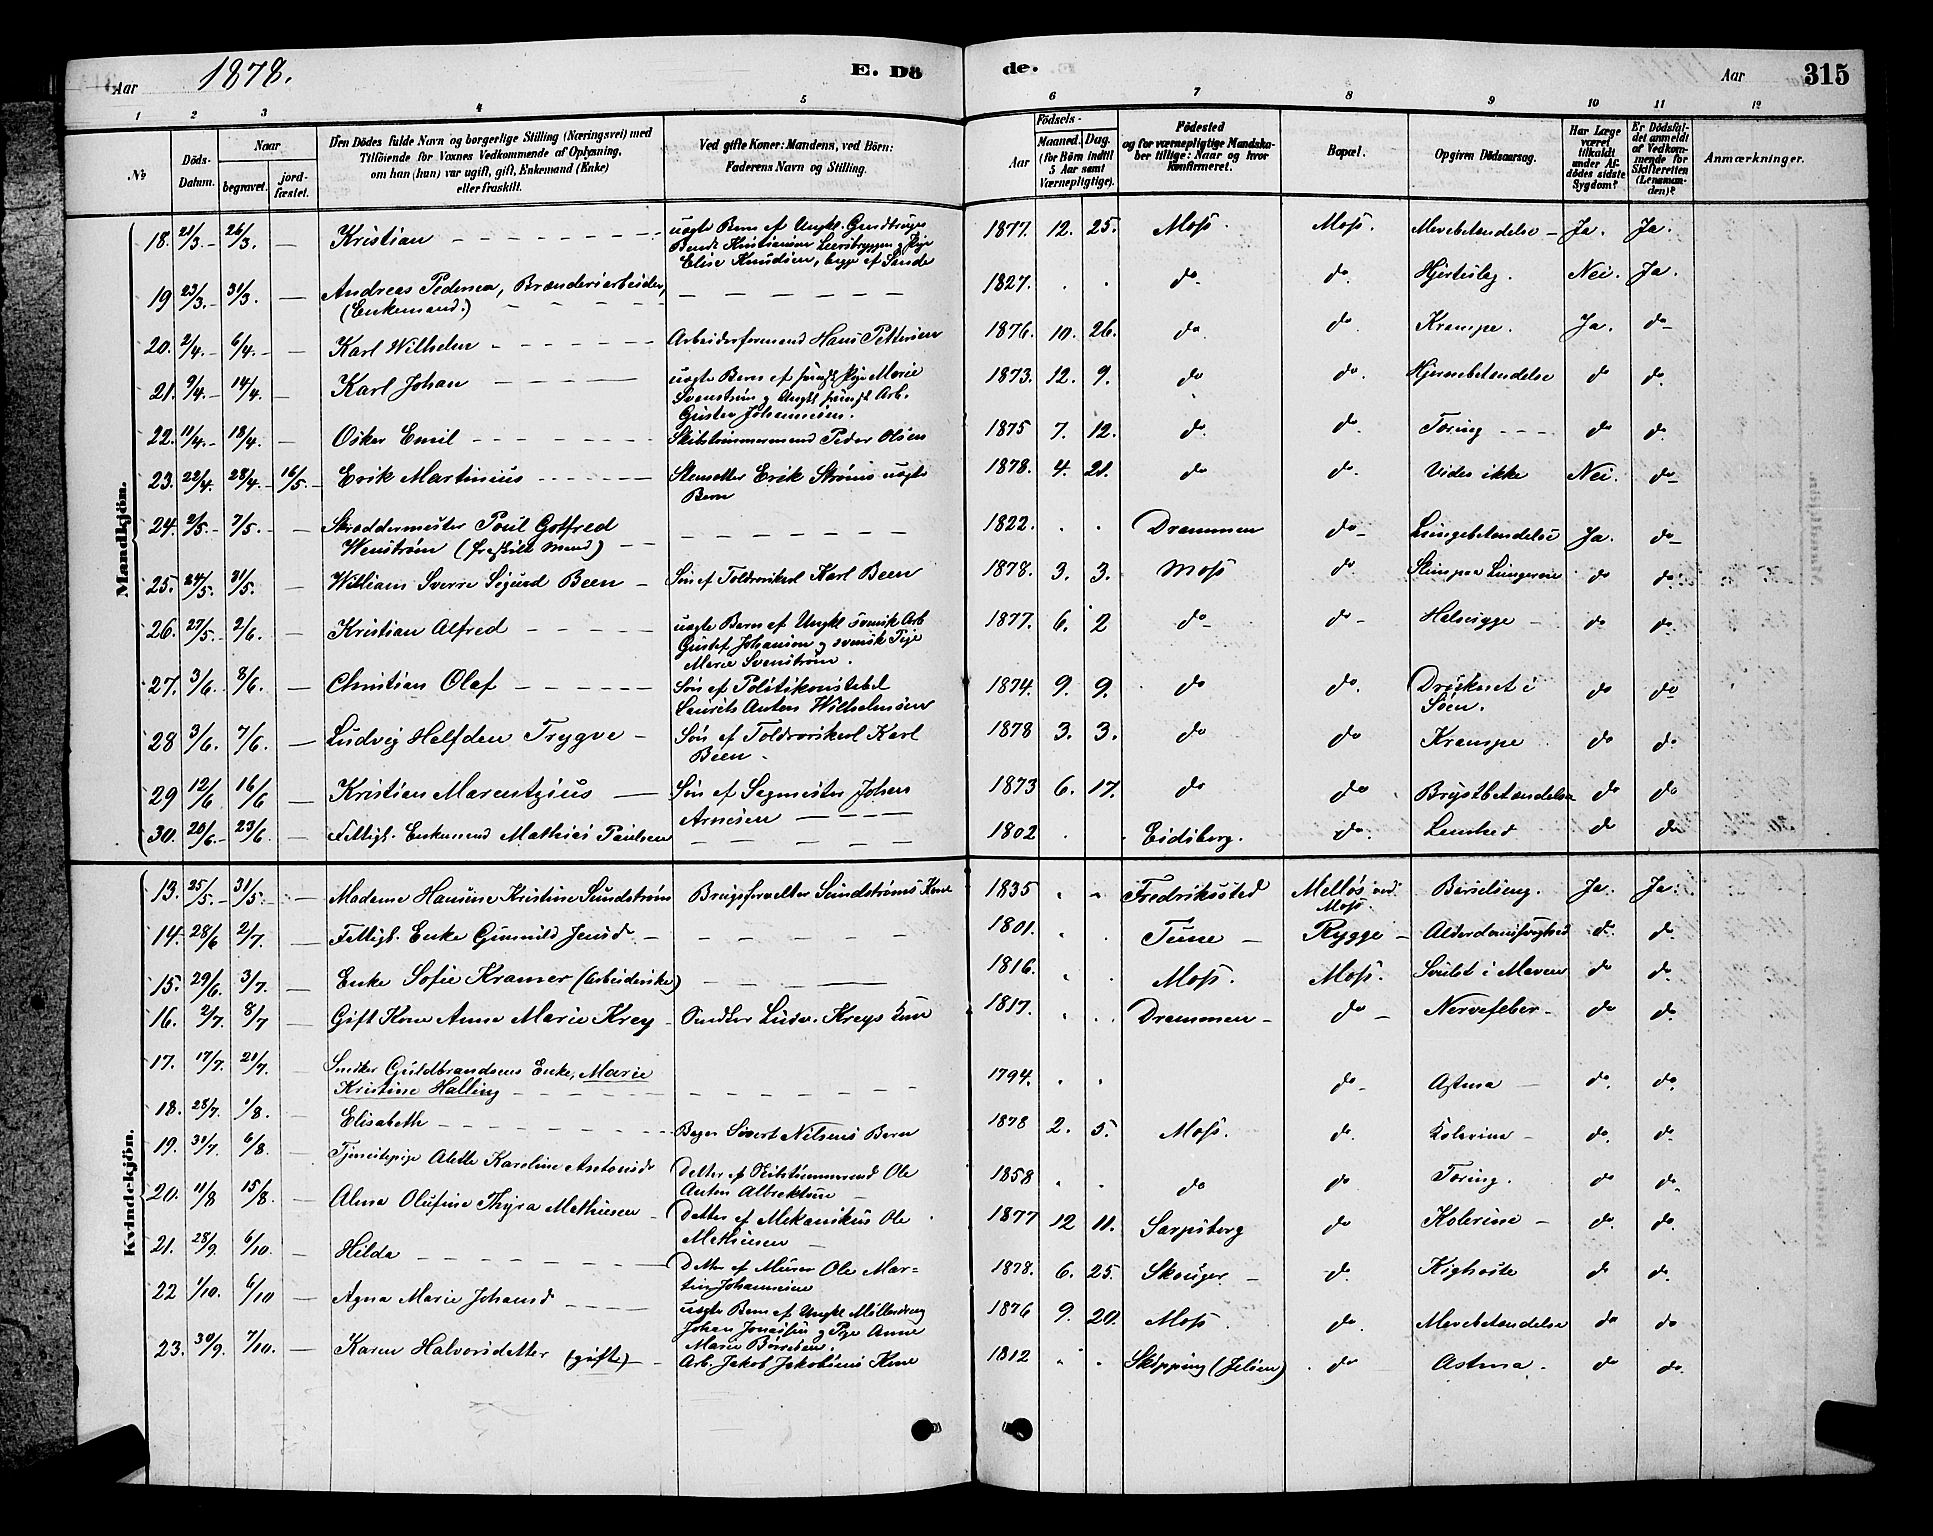 Aar 1878. E. Dö de. Aar 315
1 2 3 4 5 6 7 8 9 10 11 12
No
Döds-
Datum.
Naar
begravet.
jord-
fæstet.
Den Dödes fulde Navn og borgerlige Stilling (Næringsvei) med
Tilföiende for Voxnes Vedkommende af Oplysning,
om han (hun) var ugift, gift, Enkemand (Enke)
eller fraskilt.
Ved gifte Koner: Mandens, ved Börn:
Faderens Navn og Stilling.
Födsels-
Aar
Maaned. Dag.
(for Börn indtil
5 Aar samt
Værnepligtige).
Födested
og for værnepligtige Mandska-
ber tillige: Naar og hvor
konfirmeret.
Bopæl.
Opgiven Dödsaarsag.
Har Læge
været
tilkaldt
under Af-
dödes sidste
Sygdom?
Er Dödsfal-
det anmeldt
af Vedkom-
mende for
Skifteretten
(Lensman-
den)?
Anmærkninger.
Mandkjön.
18. 21/3. 26/3. — Kristian uægte Barn af Ungkl. Gaardbruger 1877. 12. 25. Moss. Moss. Mavebetændelse Ja. Ja.
Bendt Kristiansen
Elise Knudsen, begge af Sande
19 23/3. 31/3. — Andreas Pedersen, Brænderiarbeider, 1827. do. do. Hjerteslag. Nei. Ja.
(Enkemand.)
20. 2/4. 6/4. — Karl Wilhelm Arbeidsformand Hans Pettersen 1876. 10. 26. do do Krampe. Ja. do
21. 9/4. 14/4. — Karl Johan uægte Barn af svensk Pige Marie 1873. 12. 9. do do. Hjernebetændelse do do.
Svenström og Ungkl svensk Arb.
Gustav Johannesen.
22. 11/4. 18/4. — Oskar Emil Skibstømmermand Peder Olsen 1875 7. 12. do. do. Tæring do do.
23. 22/4. 28/4. 16/5. Erik Martinius Stenhetter Erik Strøms uægte 1878. 4. 21. do do. Vides ikke Nei. do
Barn
24. 2/5. 7/5. — Skræddermester Poul Gotfred 1822. Drammen do Lungebetændelse Ja. do
Wenstrøm (fraskilt Mand)
25. 24/5. 31/5. — William Sverre Sigurd Been Søn af Toldroerskarl Karl Been 1878. 3. 3. Moss do. do do.
26. 27/5. 2/6. Kristian Alfred uægte Barn af Ungkl svensk Arb 1877. 6. 2 do do Halssyge do do.
Gustaf Johansen og svensk Pige
Marie Svenstrøm.
27. 3/6. 8/6. — Christian Olaf Søn af Politikonstabel 1874. 9. 9. do do. Druknet i do do
Laurits Anton Wilhelmsen Søen.
28 3/6. 7/6. — Ludvig Halfdan Trygve Søn af Toldroerskarl Karl 1878 3. 3. do do Krampe do do
Been
29 12/6 16/6 — Kristian Marentzius Søn af Sagmester Johan 1873 6. 17. do do Brystbetændelse do do
Arnesen
30. 20/6. 23/6. — Fattigl. Enkemand Mathias Paulsen 1802 Eidsberg. do. Lamhed do do
Kvindekjön.
13. 25/5. 31/5. Madame Hansine Kristine Sundstrøm Brugsforvalter Sundstrøms Kone 1835 Fredriksstad Melløs ved Barselseng. Ja. Ja.
Moss.
14. 28/6 2/7. — Fattigl. Enke Gunnild Jensd 1801. Tune Rygge Alderdomssvaghed do. do.
15. 29/6. 3/7. Enke Sofie Kramer (Arbeiderske) 1816. Moss. Moss. Svulst i Maven do do
16. 2/7. 8/7 — Gift Kone Anna Marie Krey Ludv. Kreys Kone 1817. Drammen do Nervefeber do do.
17. 17/7. 21/7. — Snedker Guldbrandsens Enke, Marie 1794. do Astma do. do.
Kristine Halling
18. 28/7. 1/8. — Elisabeth Bager Sivert Nilsens Barn 1878 2. 5. Moss. do. Kolerine do. do
19. 31/7. 6/8. — Tjenestepige Alette Karoline Antonsd Datter af Skibstømmermand Ole 1858 do do Tæring. do. do.
Anton Albrektsen
20. 11/8 15/8. — Alma Olufine Thyra Mathiesen Datter af Mekanikus Ole 1877 12 11. Sarpsborg do Kolerine do. do.
Mathiesen
21. 28/9. 6/10. — Hilda Datter af Murer Ole Mar- 1878. 6. 25. Skouger do. Kighoste do do
tin Johannesen
22 1/10. 6/10 — Agna Marie Johansd uægte Barn af Ungkl Møllersvend 1876 9. 20. Moss do. Mavebetændelse do do
Johan Jonassen og Pige Anne
Marie Børresen.
23. 30/9. 7/10. — Karen Halvorsdatter (gift) Arb. Jakob Jakobsens Kone 1812 Skipping (Jeløen) do Astma. do do